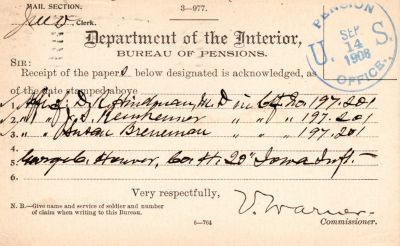 MAIL SECTION.
3—977.
Clerk.
Department of the Interior,
BUREAU OF PENSIONS.
PENSION OFFICE.
U.S.
SEP
14
1908
SIR:
Receipt of the papers below designated is acknowledged, as
of the date stamped above
1. Affid D. Hindman, M.D in Ctf No. 197.201
2. " " J. S. " " " 197.201
3. " " Susan Breneman " " " 197.201
4.
5. George C. Hoover, Co. H. 20" Iowa Inft.
6.
Very respectfully,
V. Warner.
Commissioner.
N. B.—Give name and service of soldier and number
of claim when writing to this Bureau.
6—764